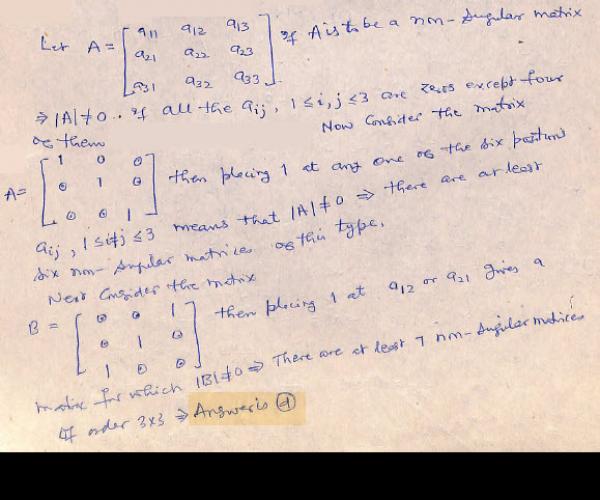 Let A = [ a11 a12 a13
a21 a22 a23
a31 a32 a33 ] if A is to be a non-Singular matrix
⇒ |A| ≠ 0 .. if all the aij, 1 ≤ i, j ≤ 3 are zeros except four
of them Now Consider the matrix
A = [ 1 0 0
0 1 0
0 0 1 ] then placing 1 at any one of the six positions
aij, 1 ≤ i ≠ j ≤ 3 means that |A| ≠ 0 ⇒ there are at least
six non-Singular matrices of this type.
Next Consider the matrix
B = [ 0 0 1
0 1 0
1 0 0 ] then placing 1 at a12 or a21 gives a
matrix for which |B| ≠ 0 ⇒ There are at least 7 non-Singular matrices
of order 3x3 ⇒ Answer is